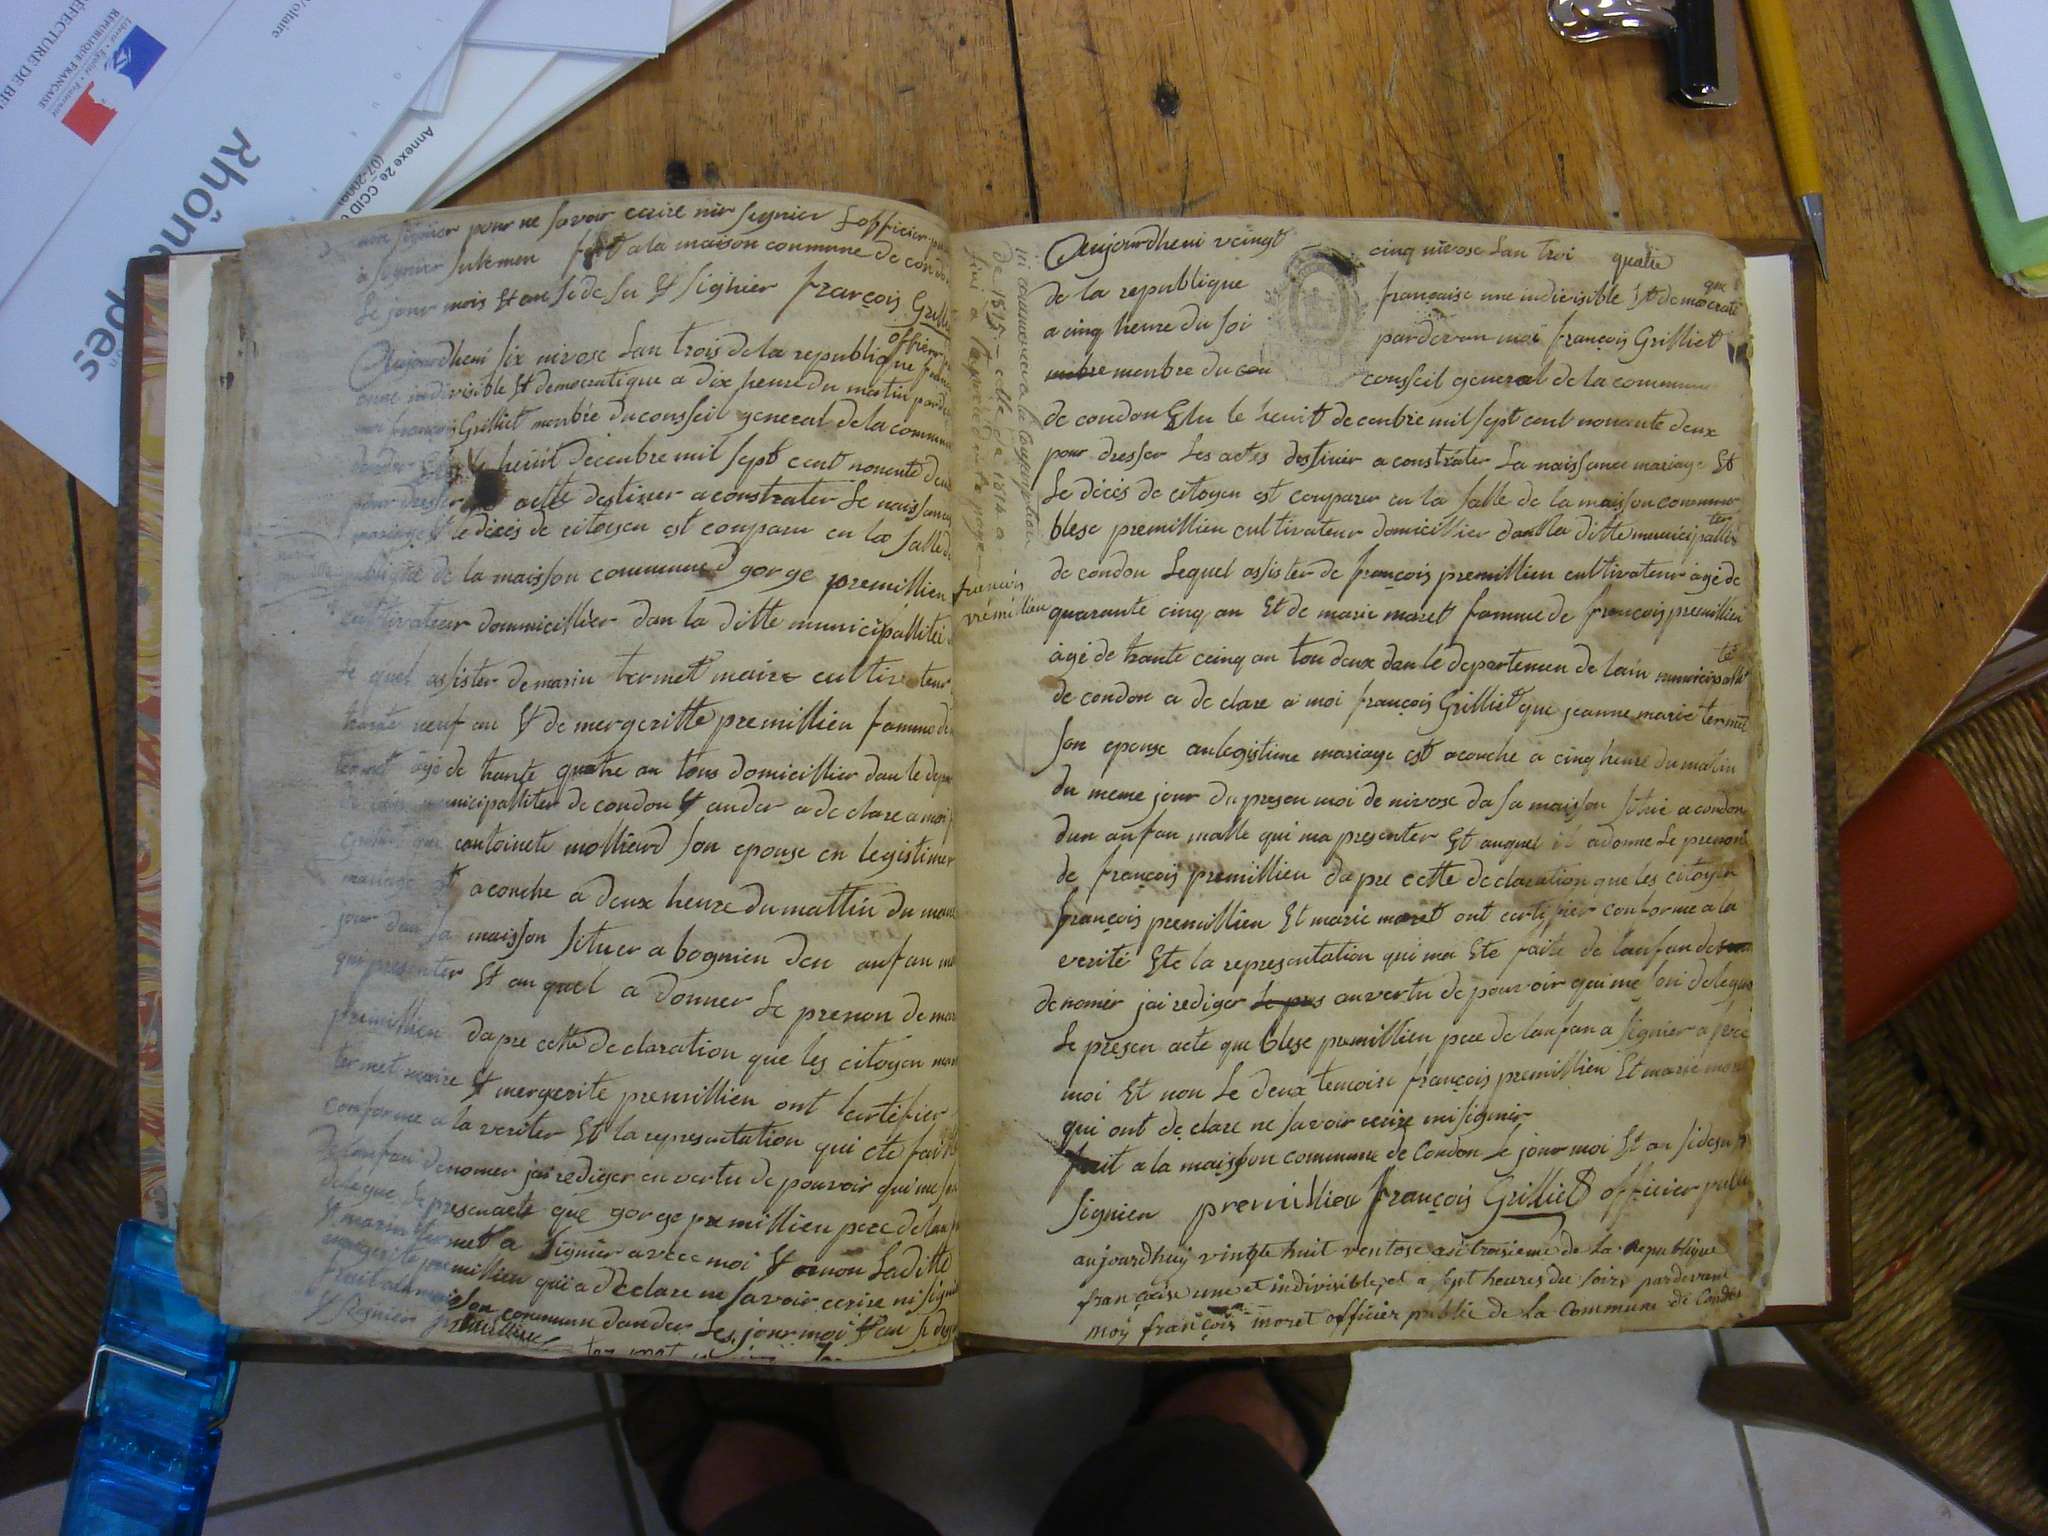 RÉPUBLIQUE FRANÇAISE
Rhône
pes
Annexe 2e CCID
non signier pour ne savoir ecrire nir signier Lofficier
a signier sulemen fait a la maison commune de condon
Le jour mois Et an si de su Et sighier françois Grilliet
officier
Aujourdheui six nivose Lan trois de la republique
une indivisible Et democratique a dix heure du matin
moi françois Grilliet menbre du consseil general de la commune
heuit decenbre mil sept cent nonente deux
pour dresser acte destiner a constrater Le naissance
mariage Et le décés de citoyen est conparu en la salle
publique de la maisson commune gorge premillien
cultivateur dommicillier dan la ditte municipallitei
le quel assister de marin termet maire cultivateur
trante neuf an Et de mergeritte premillien famme de
termet agé de trante quatre an tous domicillier dan le
municipalliter de condon Et ander a de clare a moi
cantoinete mollierd son epouse en legistimer
mariage Et aconche a deux heure du mattin du meme
jour dan sa maisson situer a bognien den anfan
qui presenter Et au quel a donner Le prenon de
premillien dapre cette declaration que les citoyen
termet maire Et mergerite premillien ont certefier
conforme a la veriter Et la representation qui ete fait
de lanfan denomer jai rediger en vertu de pouvoir qui me
delegue le presen acte que gorge premillien pere de
Et marin termet a signier avece moi Et non Laditte
mergerite premillien qui a declare ne savoir ecrire ni signier
fait a la maison commune dander Les jour moi Et an si
Et signier premillien
ni commencer a la conscription
de 1815 — celle de 1814 a
fini a
francois
prémillien
Aujourdheui veingt cinq nivose Lan troi quatre
de la republique française une indivisible Et democratique
a cinq heure du soi pardevan moi françois Grilliet
menbre menbre du con consseil general de la commune
de condon Elu le heuit decenbre mil sept cent nonante deux
pour dresser Les actes destinier a constrater La naissance mariage Et
Le décés de citoyen est conparu en la salle de la maison commune
blese premillien cultivateur domicillier dan la ditte municipalliter
de condon Lequel assister de françois premillien cultivateur agé de
quarante cinq an Et de marie moret famme de françois premillien
agé de trante ceinq an tou deux dan le departemen de lain municipallité
de condon a de clare a moi françois Grilliet que jeanne marie termet
son epouse an legistime mariage est aconche a cinq heure du matin
du meme jour du presen moi de nivose da sa maisson situé a condon
dun anfan malle qui ma presenter Et auquel il a donne Le prenon
de françois premillien dapre cette declaration que les citoyen
françois premillien Et marie moret ont certifier conforme a la
verité Ete la representation qui ma Ete faite de lanfan
denomér jai rediger Le pres an vertu de pouvoir qui me son delegue
Le presen acte que blese premillien pere de lanfan a signier avece
moi Et non Le deux temoire françois premillien Et marie moret
qui ont declare ne savoir ecrire ni signier
fait a la maisson commune de Condon Le jour moi Et an si desu
signien premillien françois Grilliet officier public
aujourdhuy vingte huit ventose an troisieme de la Republique
française une et indivisible, et a sept heures du soire pardevant
moy françois moret officier public de la Commune de Condon